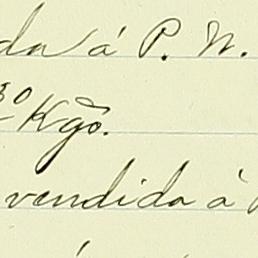 da á P. W.
30 Kgs.
vendida á